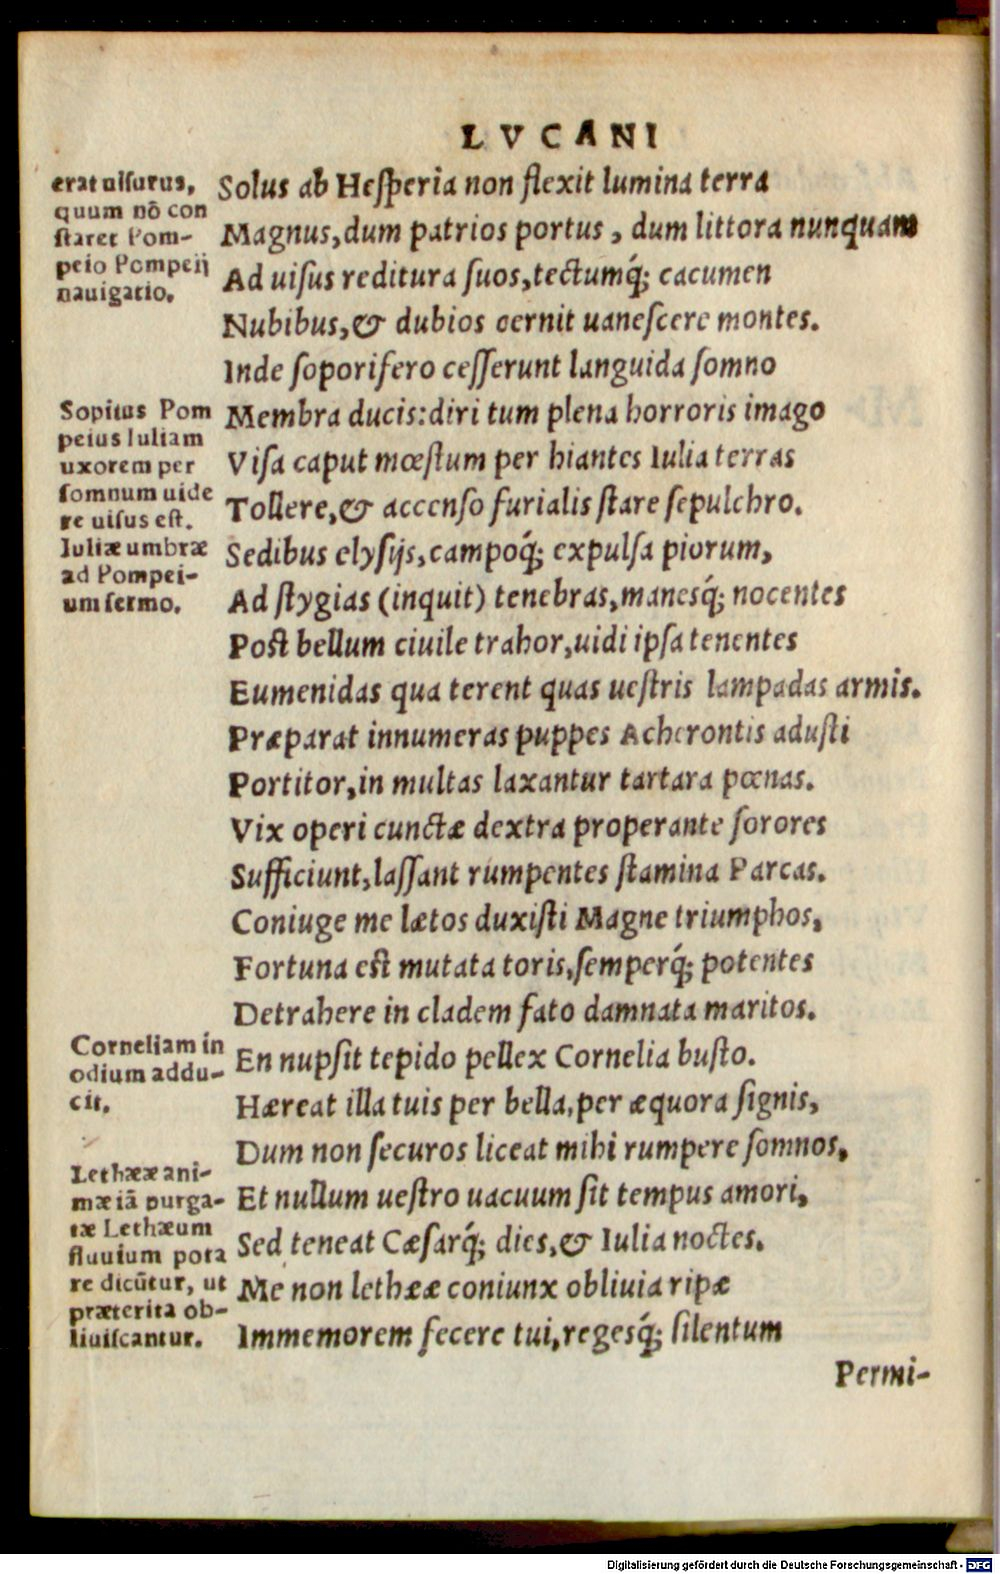 LVCANI
erat uisurus,
quum nō con
staret Pom-
peio Pompeij
nauigatio.
Solus ab Hesperia non flexit lumina terra
Magnus, dum patrios portus, dum littora nunquam
Ad uisus reditura suos, tectumq́; cacumen
Nubibus, & dubios cernit uanescere montes.
Inde soporifero cesserunt languida somno
Sopitus Pom
peius Iuliam
uxorem per
somnum uide
re uisus est.
Iuliæ umbræ
ad Pompei-
um sermo.
Membra ducis: diri tum plena horroris imago
Visa caput mœstum per hiantes Iulia terras
Tollere, & accenso furialis stare sepulchro.
Sedibus elysijs, campoq́; expulsa piorum,
Ad stygias (inquit) tenebras, manesq́; nocentes
Post bellum ciuile trahor, uidi ipsa tenentes
Eumenidas qua terent quas uestris lampadas armis.
Præparat innumeras puppes Acherontis adusti
Portitor, in multas laxantur tartara pœnas.
Vix operi cunctæ dextra properante sorores
Sufficiunt, lassant rumpentes stamina Parcas.
Coniuge me lætos duxisti Magne triumphos,
Fortuna est mutata toris, semperq́; potentes
Detrahere in cladem fato damnata maritos.
Corneliam in
odium addu-
cit.
En nupsit tepido pellex Cornelia busto.
Hæreat illa tuis per bella, per æquora signis,
Dum non securos liceat mihi rumpere somnos,
Lethææ ani-
mæ iā purga-
tæ Lethæum
fluuium pota
re dicūtur, ut
præterita ob-
liuiscantur.
Et nullum uestro uacuum sit tempus amori,
Sed teneat Cæsarq́; dies, & Iulia noctes.
Me non lethææ coniunx obliuia ripæ
Immemorem fecere tui, regesq́; silentum
Permi-
Digitalisierung gefördert durch die Deutsche Forschungsgemeinschaft - DFG